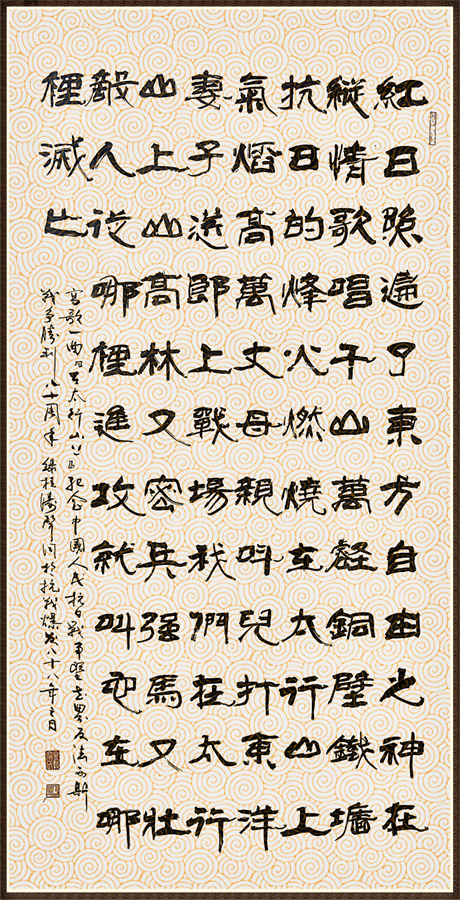 紅日照遍了東方自由之神在
縱情歌唱千山萬壑銅壁鐵墻
抗日的烽火燃燒在太行山上
氣熖高萬丈母親叫兒打東洋
妻子送郎上戰場我們在太行
山上山高林又密兵强馬又壯
敵人從哪裡進攻就叫它在哪
裡滅亡
歌一曲太行山上紀念中國人民抗日戰爭暨世界反法西斯
戰爭勝利八十周年於抗戰爆發八十八年